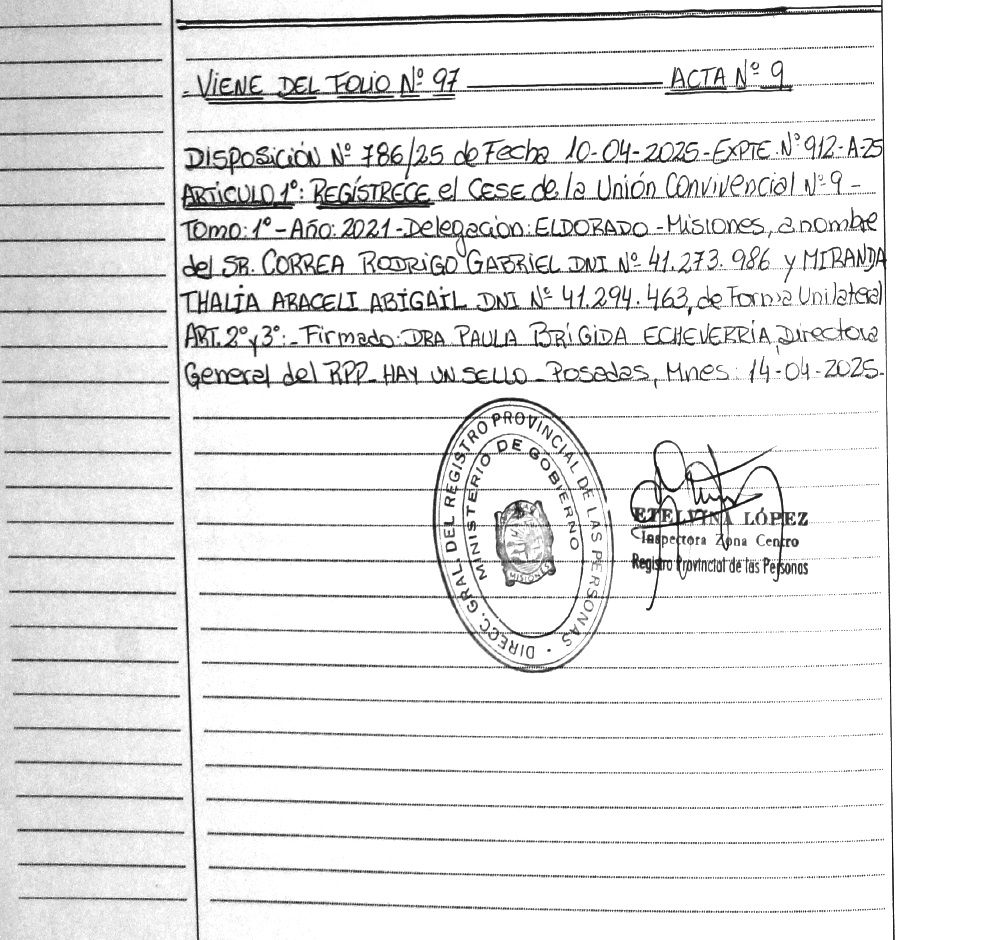 - VIENE DEL FOLIO Nº 97 ——— ACTA Nº 9
DISPOSICIÓN Nº 786/25 de Fecha 10-04-2025-EXPTE.Nº 912-A-25
ARTICULO 1º: REGÍSTRECE el CESE de la UNIÓN CONVIVENCIAL Nº 9 -
TOMO: 1º - AÑO: 2021 - Delegación: ELDORADO - Misiones, a nombre
del SR. CORREA RODRIGO GABRIEL DNI Nº 41.273.986 y MIRANDA
THALÍA ARACELI ABIGAÍL DNI Nº 41.294.463, de Forma Unilateral
ART. 2º y 3º:- Firmado: DRA PAULA BRÍGIDA ECHEVERRÍA, Directora
General del RPP - HAY UN SELLO - Posadas, Mnes: 14-04-2025.-
DIRECC. GRAL. DEL REGISTRO PROVINCIAL DE LAS PERSONAS
MINISTERIO DE GOBIERNO
MISIONES
ETELVINA LÓPEZ
Inspectora Zona Centro
Registro Provincial de las Personas